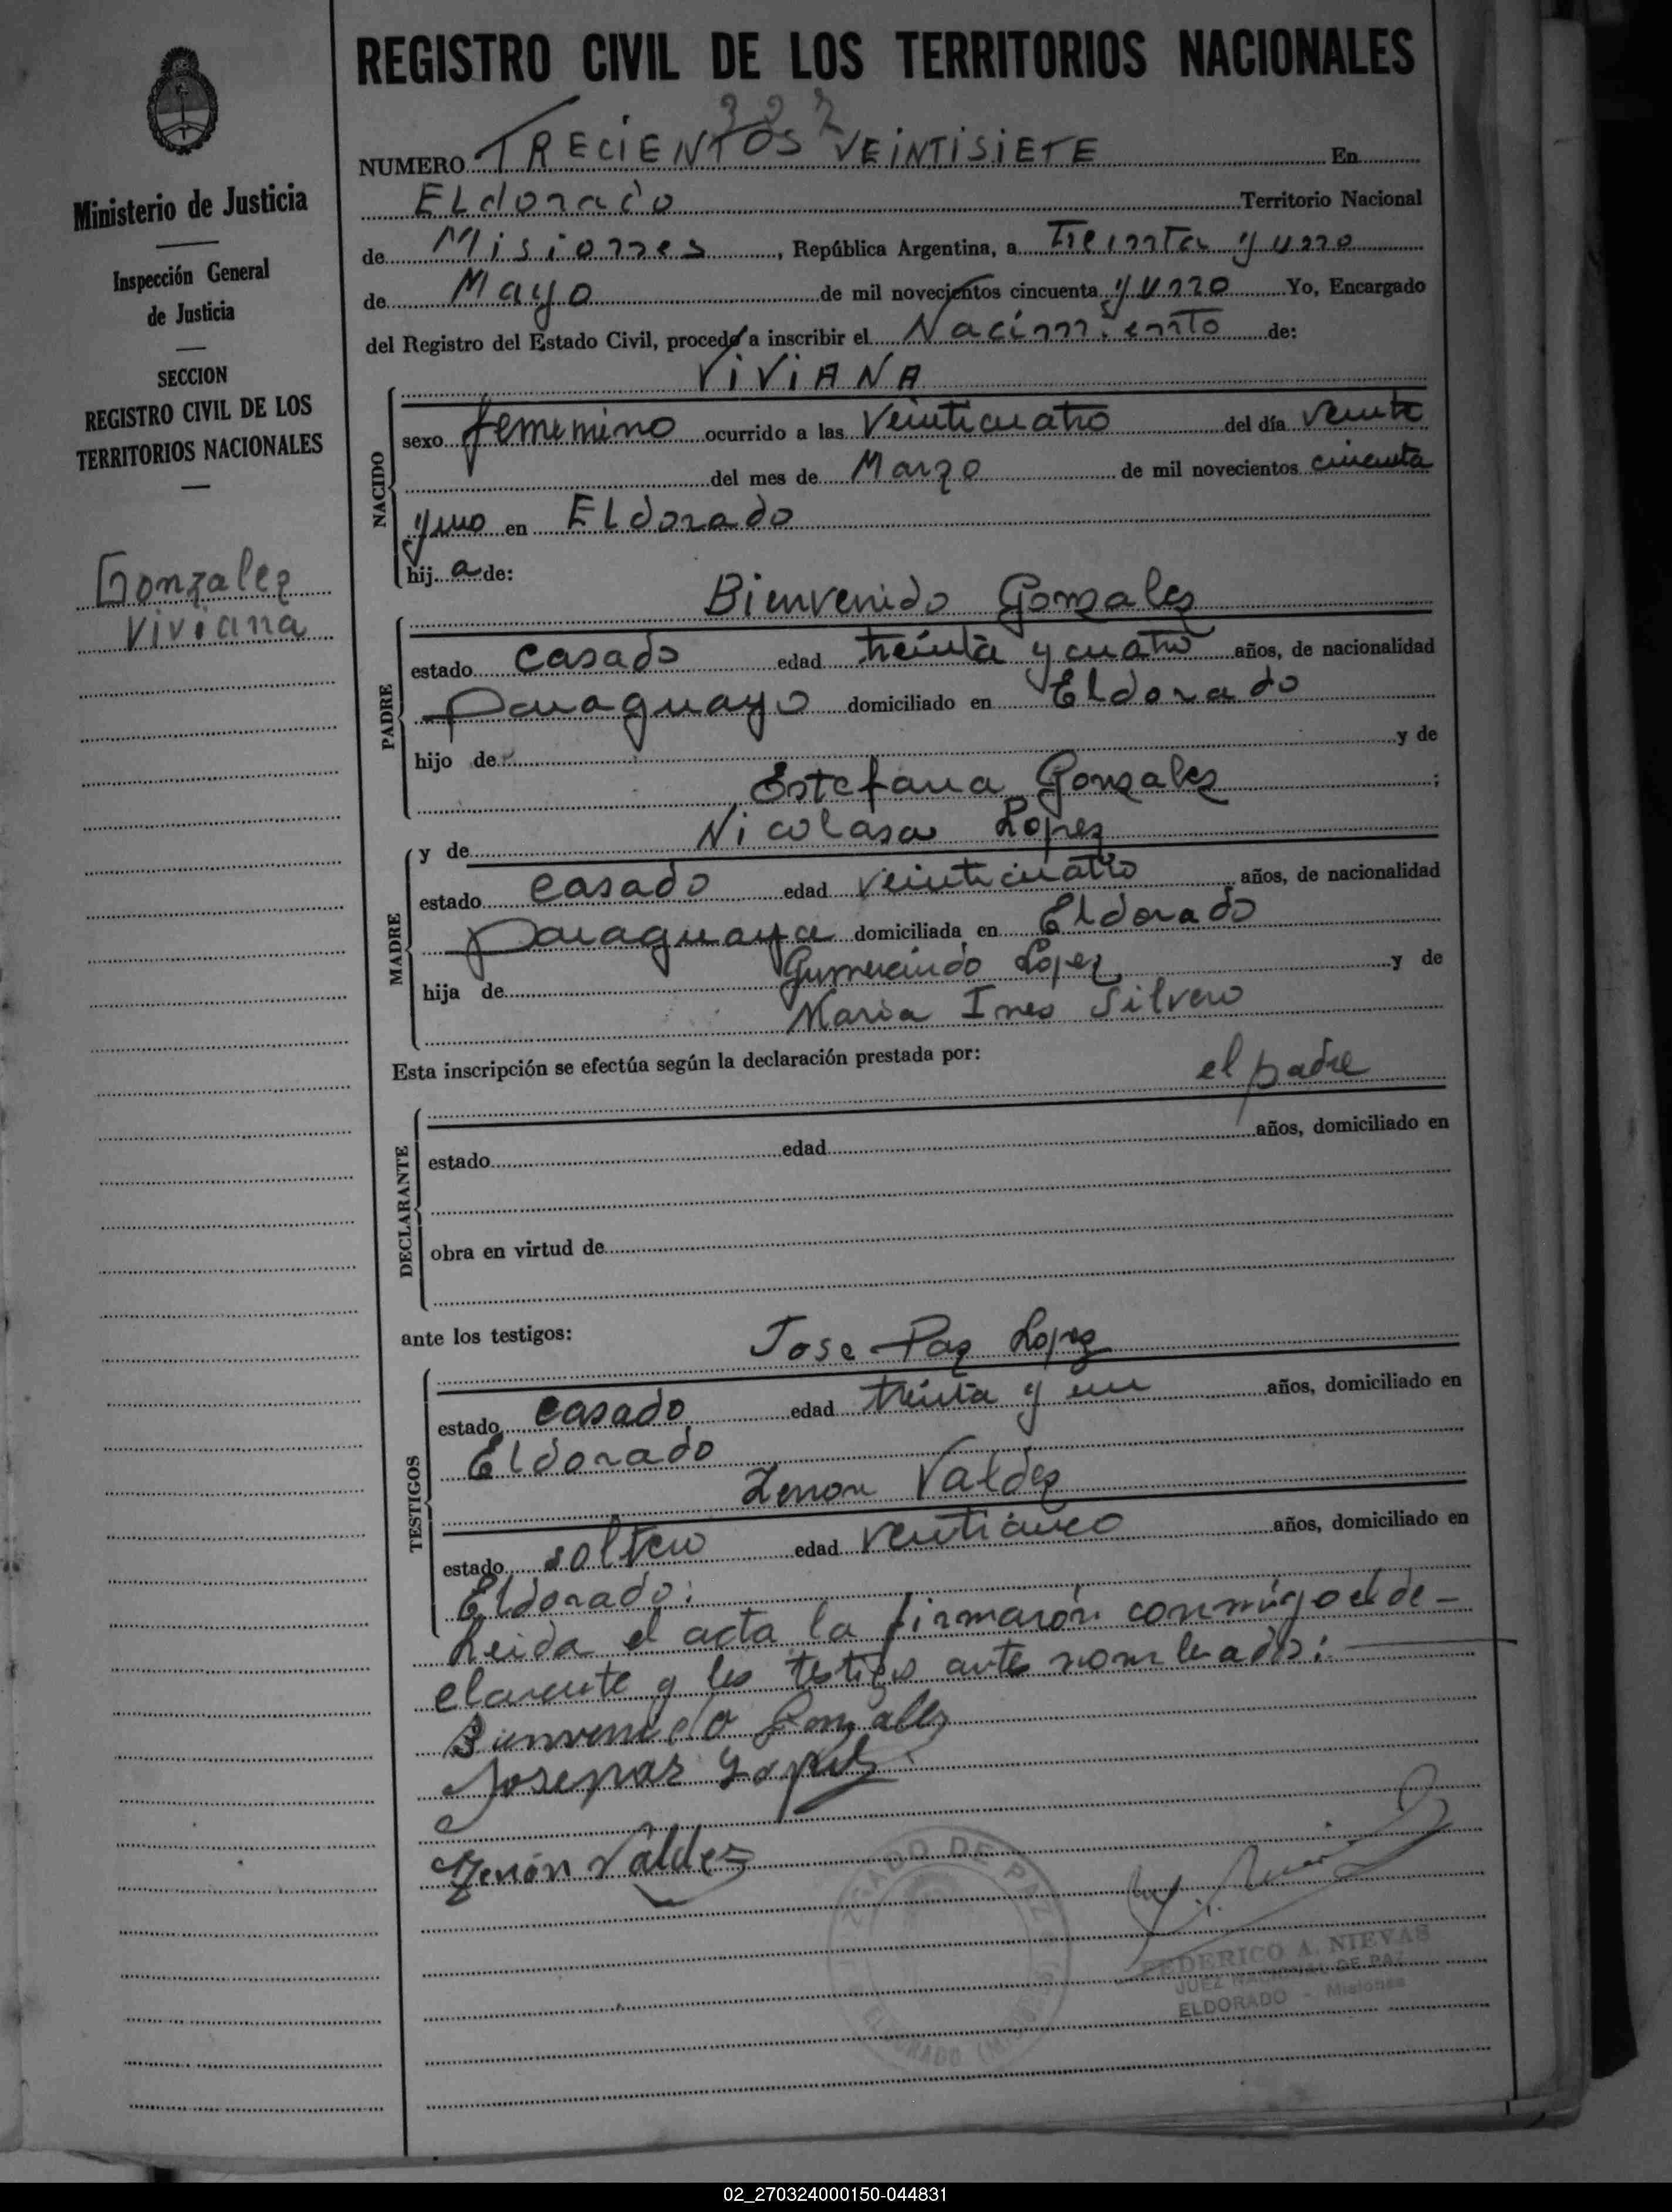 REGISTRO CIVIL DE LOS TERRITORIOS NACIONALES
327
NUMERO TRECIENTOS VEINTISIETE En
ELdorado Territorio Nacional
de Misiones, República Argentina, a Treinta y uno
de Mayo de mil novecientos cincuenta y uno Yo, Encargado
del Registro del Estado Civil, procedo a inscribir el Nacimiento de:
Ministerio de Justicia
Inspección General
de Justicia
SECCION
REGISTRO CIVIL DE LOS
TERRITORIOS NACIONALES
Gonzalez
Viviana
NACIDO
ViViANA
sexo femenino ocurrido a las Veinticuatro del día veinte
del mes de Marzo de mil novecientos cincuenta
y uno en ELdorado
hij a de:
PADRE
Bienvenido Gonzalez
estado casado edad treinta y cuatro años, de nacionalidad
paraguayo domiciliado en Eldorado
hijo de y de
Estefana Gonzalez;
MADRE
y de Nicolasa Lopez
estado casado edad veinticuatro años, de nacionalidad
paraguaya domiciliada en Eldorado
hija de Gumercindo Lopez y de
Maria Ines Silvero
Esta inscripción se efectúa según la declaración prestada por:
el padre
DECLARANTE
estado edad años, domiciliado en
obra en virtud de
ante los testigos:
TESTIGOS
Jose Paz Lopez
estado casado edad treinta y un años, domiciliado en
Eldorado
Zenon Valdez
estado soltero edad venticinco años, domiciliado en
Eldorado.
Leida el acta la firmarón conmigo el de-
clarente y los testigos antes nombrados:
Bienvenido Gonzalez
Jose paz Lopez
Zenón Valdez
JUZGADO DE PAZ
ELDORADO (Misiones)
FEDERICO A. NIEVAS
JUEZ NACIONAL DE PAZ
ELDORADO - Misiones
02_270324000150-044831